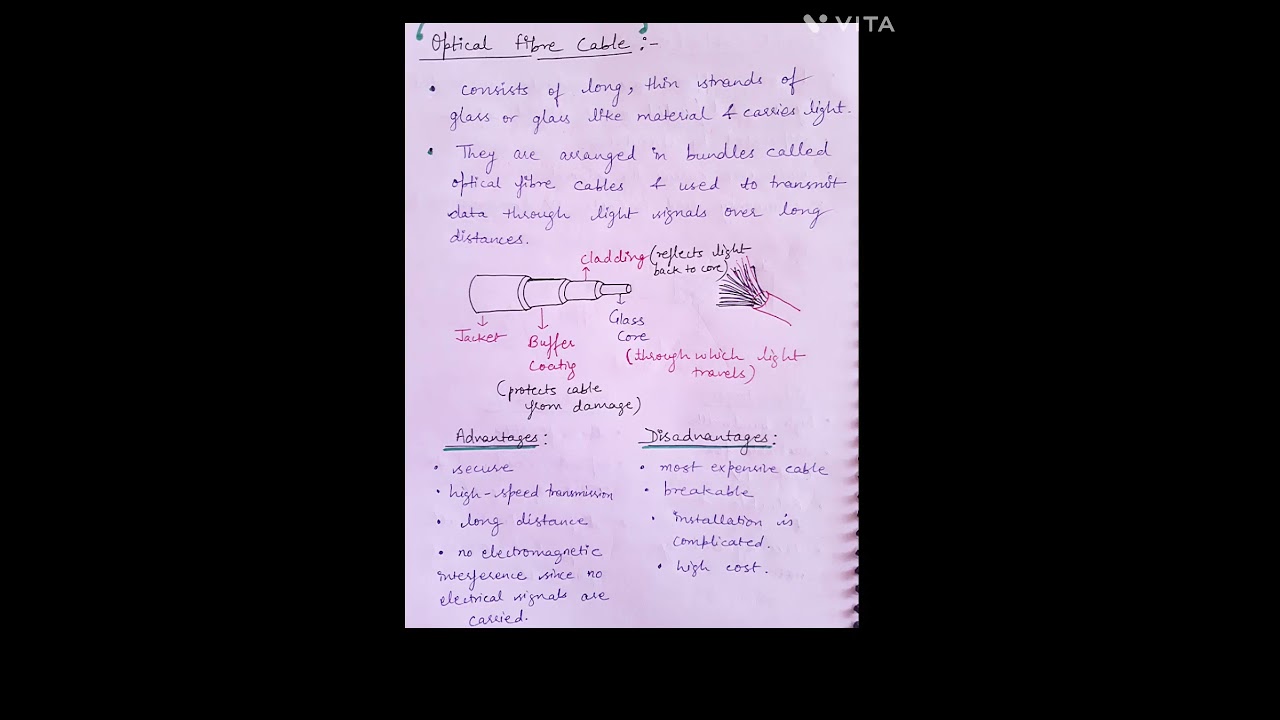 VITA
Optical fibre Cable :-
• consists of long, thin strands of
glass or glass like material & carries light.
• They are arranged in bundles called
optical fibre cables & used to transmit
data through light signals over long
distances.
cladding (reflects light
back to core)
Jacket
Buffer
Coatig
(protects cable
from damage)
Glass
Core
(through which light
travels)
Advantages:
• secure
• high-speed transmission
• long distance
• no electromagnetic
interference since no
electrical signals are
carried.
Disadvantages:
• most expensive cable
• breakable
• installation is
complicated.
• high cost.